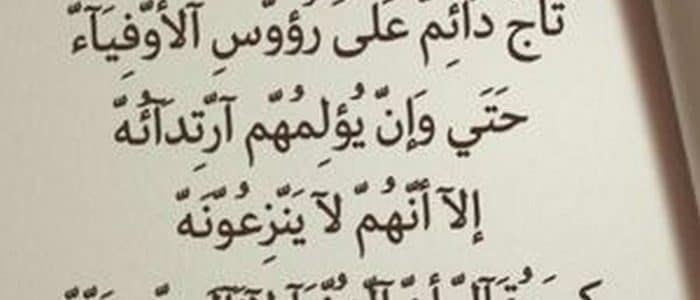 تَاج دَائِمّ عَلَىَ رُؤوّسِ آلأوّفِيَآءّ
حَتَي وَإنّ يُؤلِمهُمّ آرّتِدآئُهّ
إلآ أنّهُمّ لآ يَنّزِعُوّنَهّ